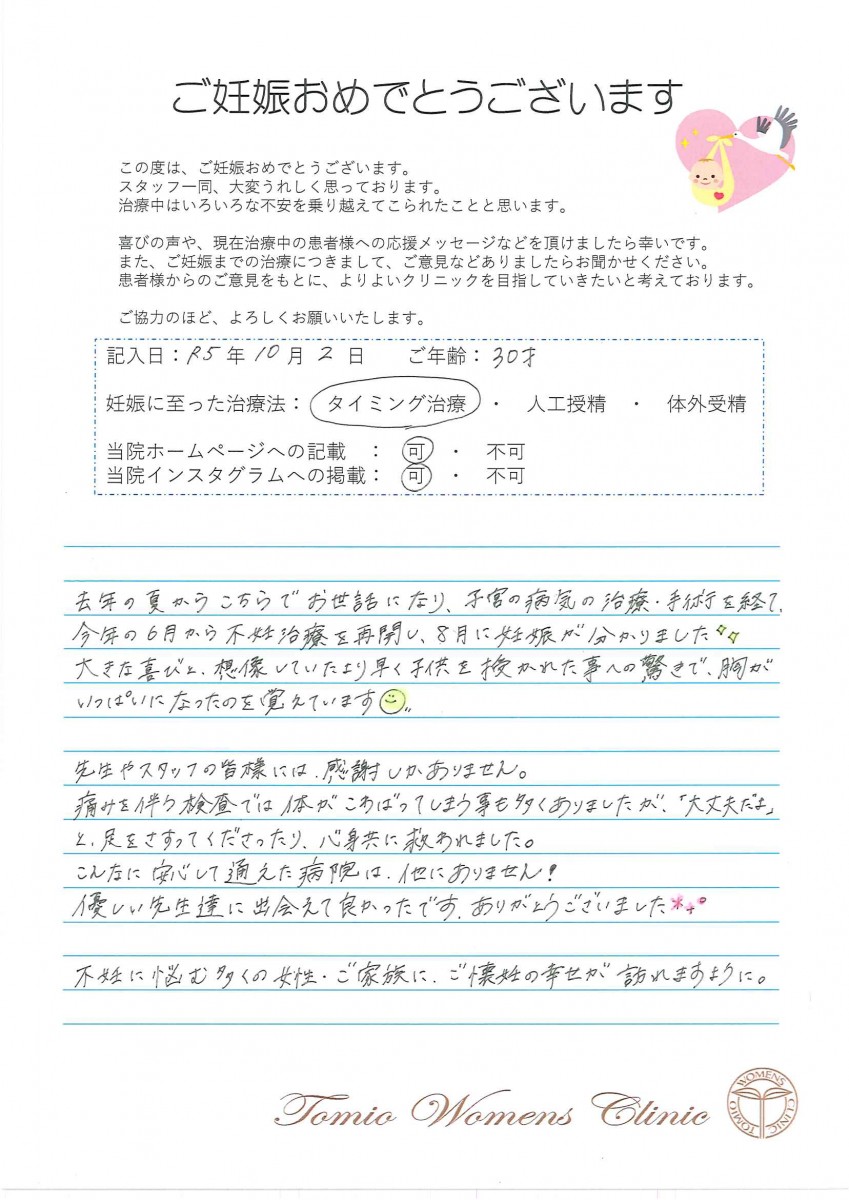 ご妊娠おめでとうございます
この度は、ご妊娠おめでとうございます。
スタッフ一同、大変うれしく思っております。
治療中はいろいろな不安を乗り越えてこられたことと思います。
喜びの声や、現在治療中の患者様への応援メッセージなどを頂けましたら幸いです。
また、ご妊娠までの治療につきまして、ご意見などありましたらお聞かせください。
患者様からのご意見をもとに、よりよいクリニックを目指していきたいと考えております。
ご協力のほど、よろしくお願いいたします。
記入日：R5年10月2日 ご年齢：30才
妊娠に至った治療法：タイミング治療 ・ 人工授精 ・ 体外受精
当院ホームページへの記載 ： 可 ・ 不可
当院インスタグラムへの掲載： 可 ・ 不可
去年の夏からこちらでお世話になり、子宮の病気の治療・手術を経て、
今年の6月から不妊治療を再開し、8月に妊娠が分かりました
大きな喜びと、想像していたより早く子供を授かれた事への驚きで、胸が
いっぱいになったのを覚えています
先生やスタッフの皆様には、感謝しかありません。
痛みを伴う検査では体がこわばってしまう事も多くありましたが、「大丈夫だよ」
と、足をさすってくださったり、心身共に救われました。
こんなに安心して通えた病院は、他にありません！
優しい先生達に出会えて良かったです。ありがとうございました
不妊に悩む多くの女性・ご家族に、ご懐妊の幸せが訪れますように。
Tomio Womens Clinic
WOMENS CLINIC TOMIO